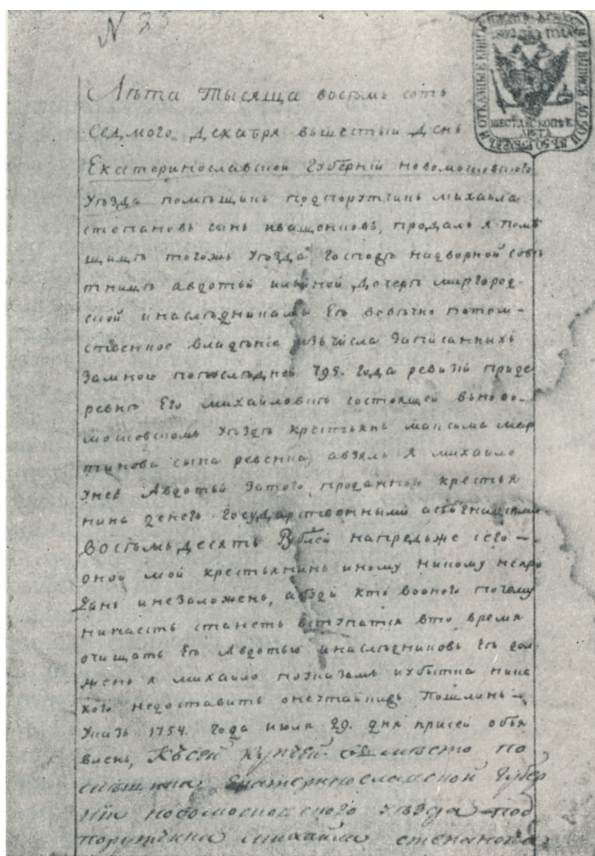 N 23
Лѣта тысяща восемь сотъ
Седмого Декабря вшестый День
Екатеринославской Губерніи новомосковского
Уѣзда помѣщикъ подпорутчикъ михайла
степановъ сынъ иващенковъ, продалъ я помѣ
щицѣ тогожъ уѣзда Госпожѣ надворной совѣ
тницѣ авдотьи ильиной Дочерѣ миргород-
ской инаслѣдникамъ Еѣ ввѣчно потом-
ственное владѣніе изъ числа Записанныхъ
Замною попослѣдней 795. года ревизіи приде
ревнѣ Его михайловкѣ состоящей вьново-
московскомъ уѣздѣ крестьянъ максима мар
тинова сына ревенка, авзялъ я михайло
унеѣ Авдотьи Затого проданного крестья
нина денегъ государственными асигнаціями
восемьдесятъ Рублей напредьже сего-
оной мой крестьянинъ иному никому непро
данъ инезаложенъ, абуди кто воного почему
нибасть станетъ вступатся вто время
очищать Еѣ Авдотью инаслѣдниковъ Еѣ дол
женъ я михайло
кого недоставить Пошлинъ-
Указъ 1754. года июля 29. дня присей объя
вленъ, Къ сей купчей вмѣсто по
мѣщика Екатеринославской Губер
ніи новомосковского уѣзда под
порутчика михайла степанова